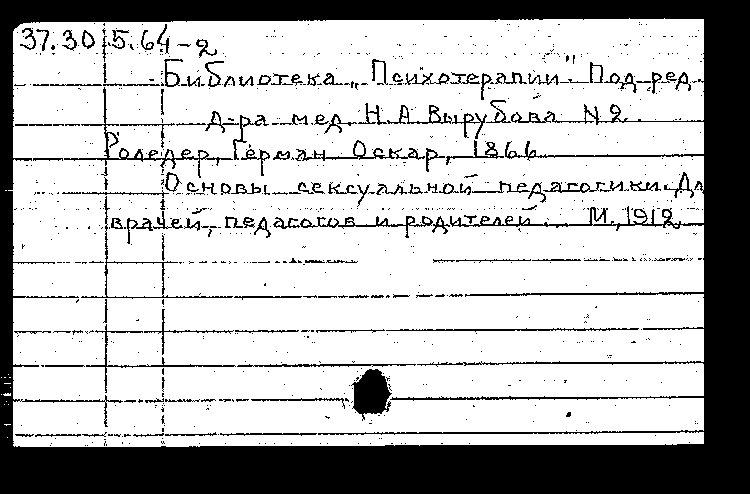 37.30.5.64-2
Библиотека „Психотерапии". Под ред.
д-ра мед. Н.А. Вырубова N2.
Роледер, Герман Оскар, 1866
Основы сексуальной педагогики. Дл
врачей, педагогов и родителей... М., 1912